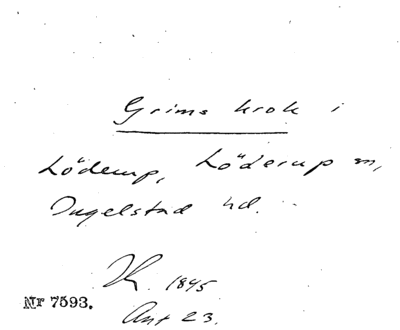 Grims krok i
Löderup, Löderup sn,
Ingelstad hd.
1845
Nr 7593.
Ant 23.